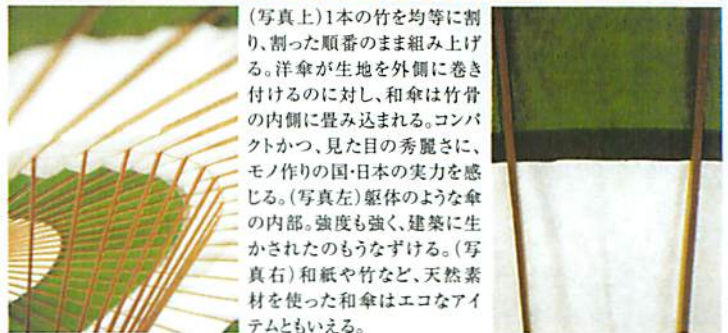 (写真上)1本の竹を均等に割
り、割った順番のまま組み上げ
る。洋傘が生地を外側に巻き
付けるのに対し、和傘は竹骨
の内側に畳み込まれる。コンパ
クトかつ、見た目の秀麗さに、
モノ作りの国・日本の実力を感
じる。(写真左)躯体のような傘
の内部。強度も強く、建築に生
かされたのもうなずける。(写
真右)和紙や竹など、天然素
材を使った和傘はエコなアイ
テムともいえる。